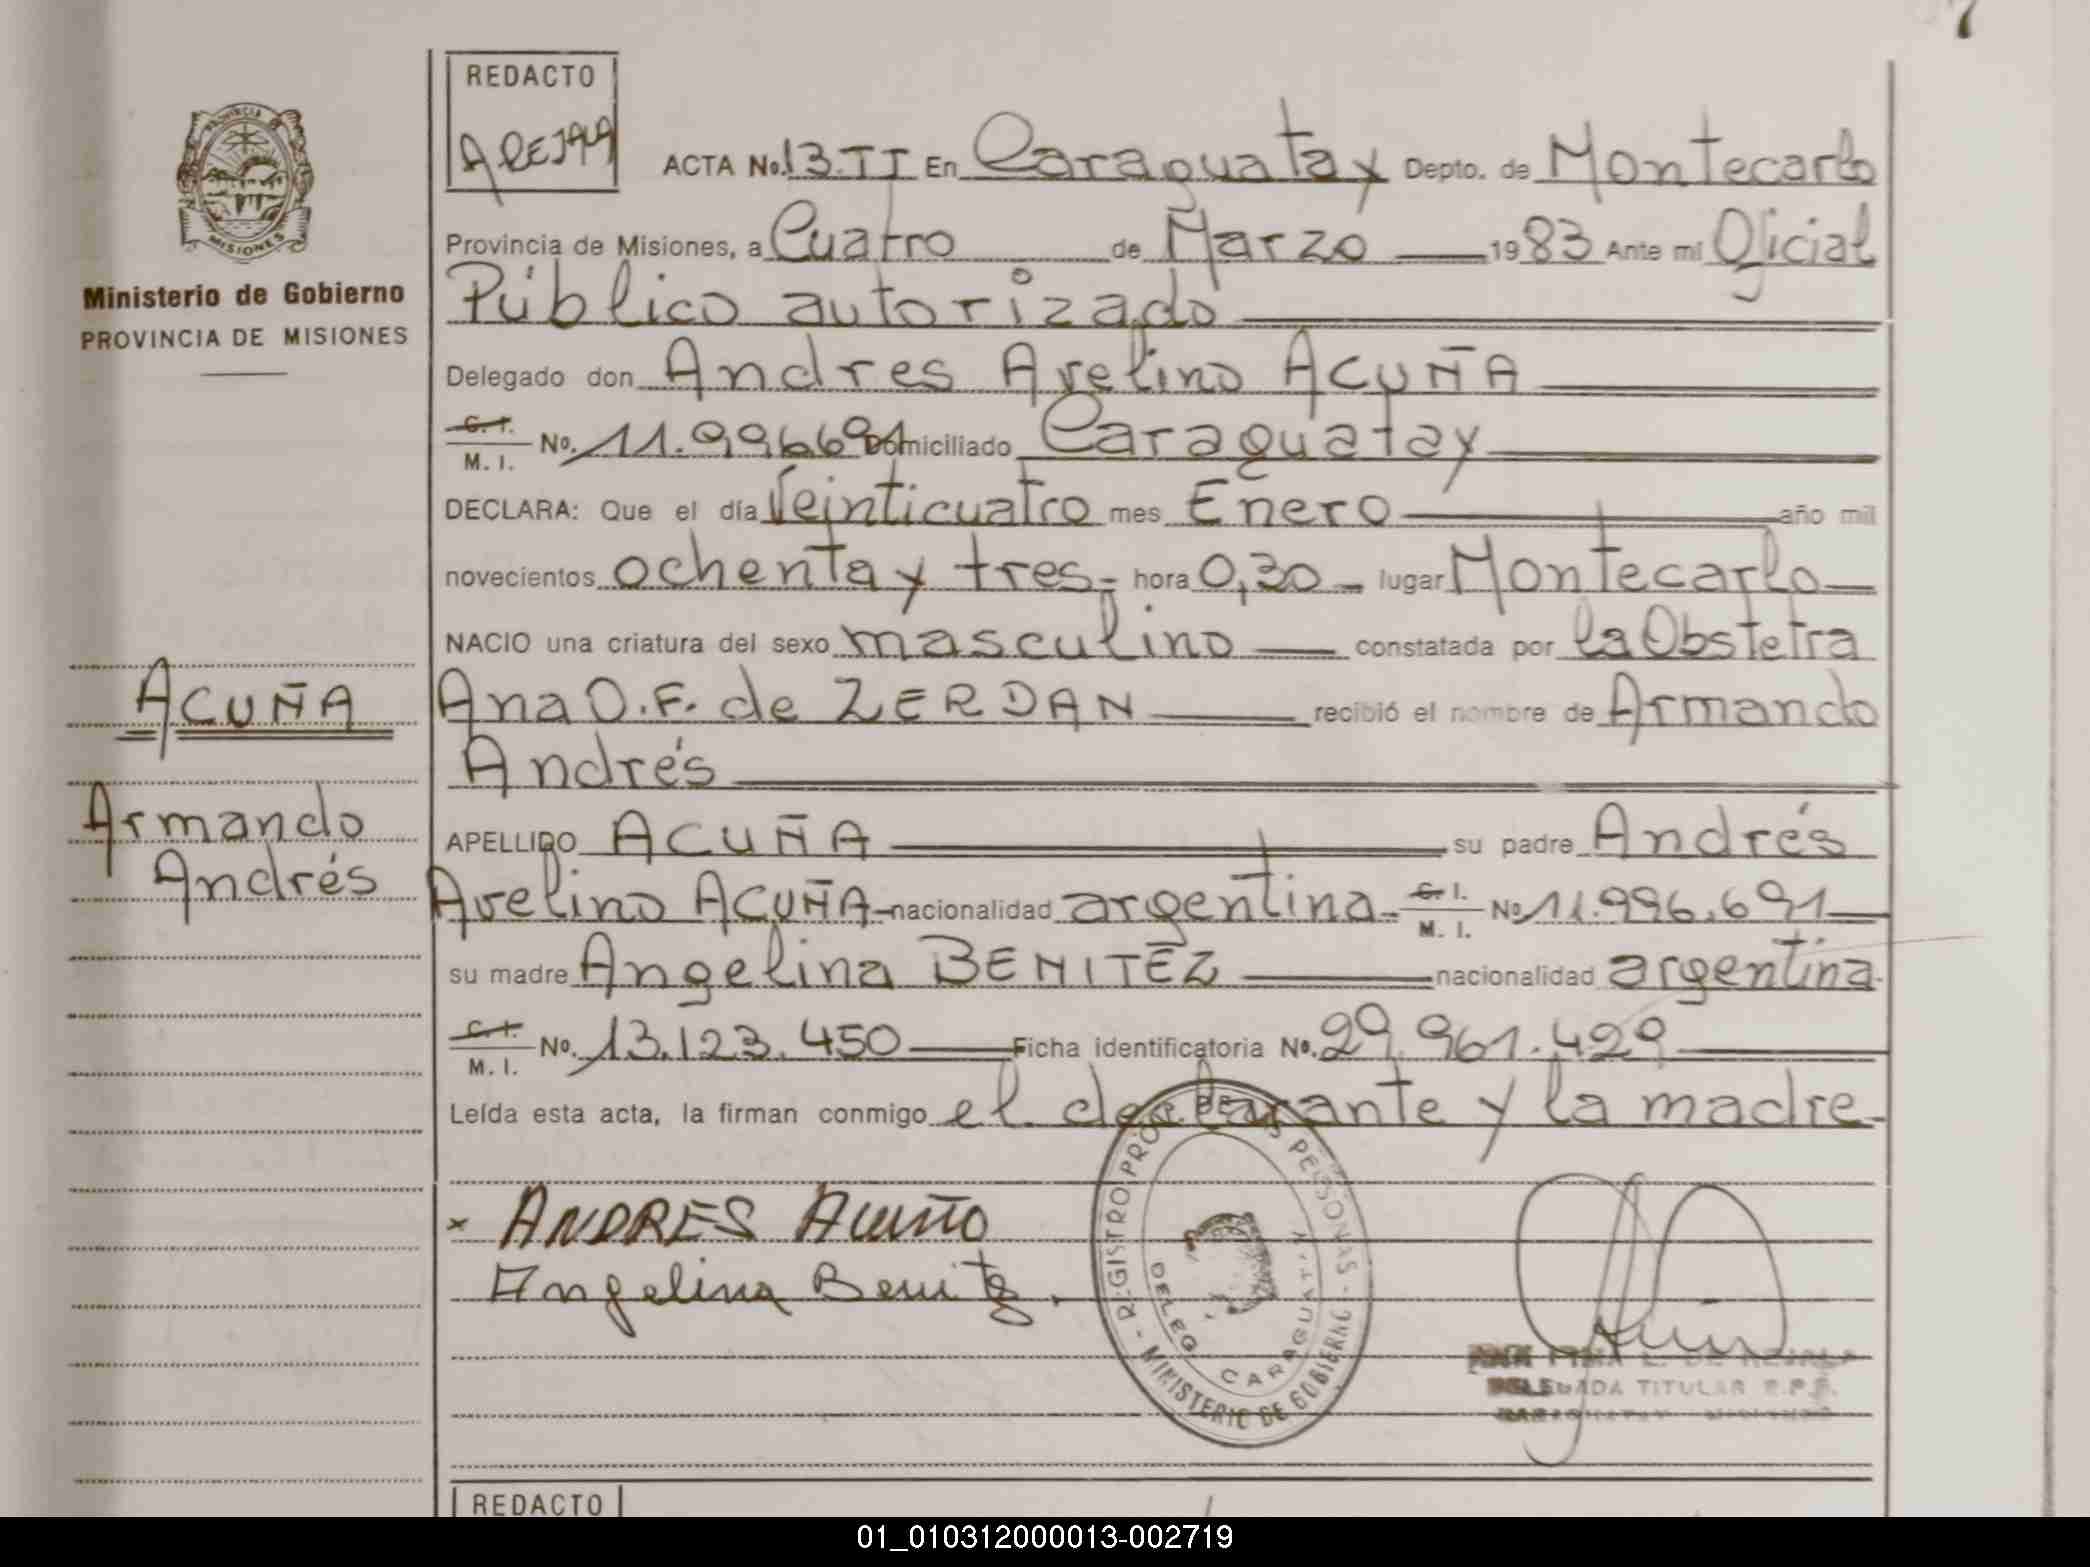 7
REDACTO
AREJALA
ACTA No. 13.TI En Caraguatay Depto. de Montecarlo
Provincia de Misiones, a Cuatro de Marzo 1983 Ante mi Oficial
Público autorizado
Delegado don Andres Avelino ACUÑA
C. I.
M. I. No. 11.996.691 Domiciliado Caraguatay
DECLARA: Que el día Veinticuatro mes Enero año mil
novecientos ochenta y tres hora 0,30 lugar Montecarlo
NACIO una criatura del sexo masculino constatada por la Obstetra
Ana O. F. de ZERDAN recibió el nombre de Armando
Andrés
APELLIDO ACUÑA su padre Andrés
Avelino ACUÑA nacionalidad argentina C. I.
M. I. No 11.996.691
su madre Angelina BENITEZ nacionalidad argentina
C. I.
M. I. No. 13.123.450 Ficha identificatoria No. 29.961.429
Leída esta acta, la firman conmigo el declarante y la madre
PROVINCIA
MISIONES
Ministerio de Gobierno
PROVINCIA DE MISIONES
ACUÑA
Armando
Andrés
x ANDRES Acuña
Angelina Benitez
REGISTRO PROV. DE LAS PERSONAS - MINISTERIO DE GOBIERNO -
DELEG. CARAGUATAY
DELEGADA TITULAR R.P.P.
REDACTO
01_010312000013-002719